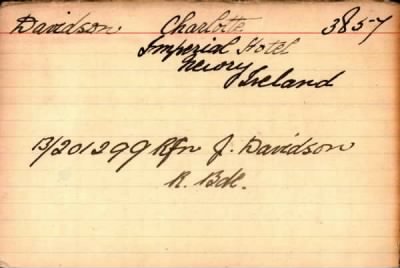 Davidson Charlotte 3857
Imperial Hotel
Newry
Ireland
B/201299 Rfn J. Davidson
R. Bde.